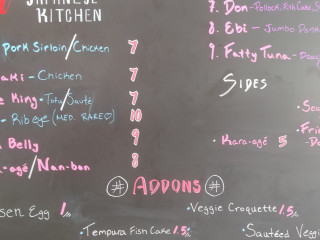 JAPANESE
KITCHEN
Pork Sirloin/Chicken 7
aki - Chicken 7
e King • Tofu/Sauté 7
• Ribeye (MED. RARE♡) 10
Belly 9
agé/Nan-ban 8
7. Don - Pollock, Fish Cake, S
8. Ebi - Jumbo
9. Fatty Tuna -
SIDES
• Kara-agé 5
# ADDONS #
sen Egg 1/
• Veggie Croquette 1.5/
• Tempura Fish Cake 1.5/
• Sautéed Veggi